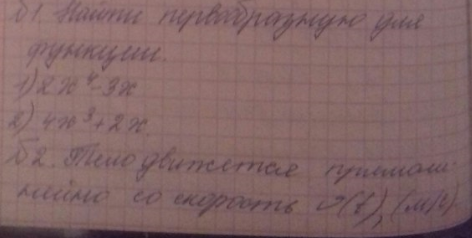 Б1. Найти первообразную для
функции.
1) 2x⁴-3x
2) 4x³+2x
Б2. Тело движется прямоли-
нейно со скорость v(t), (м/с)